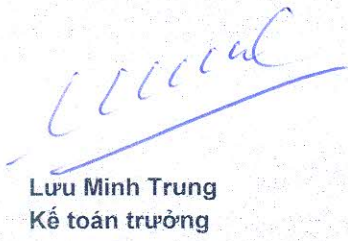 Lưu Minh Trung
Kế toán trưởng